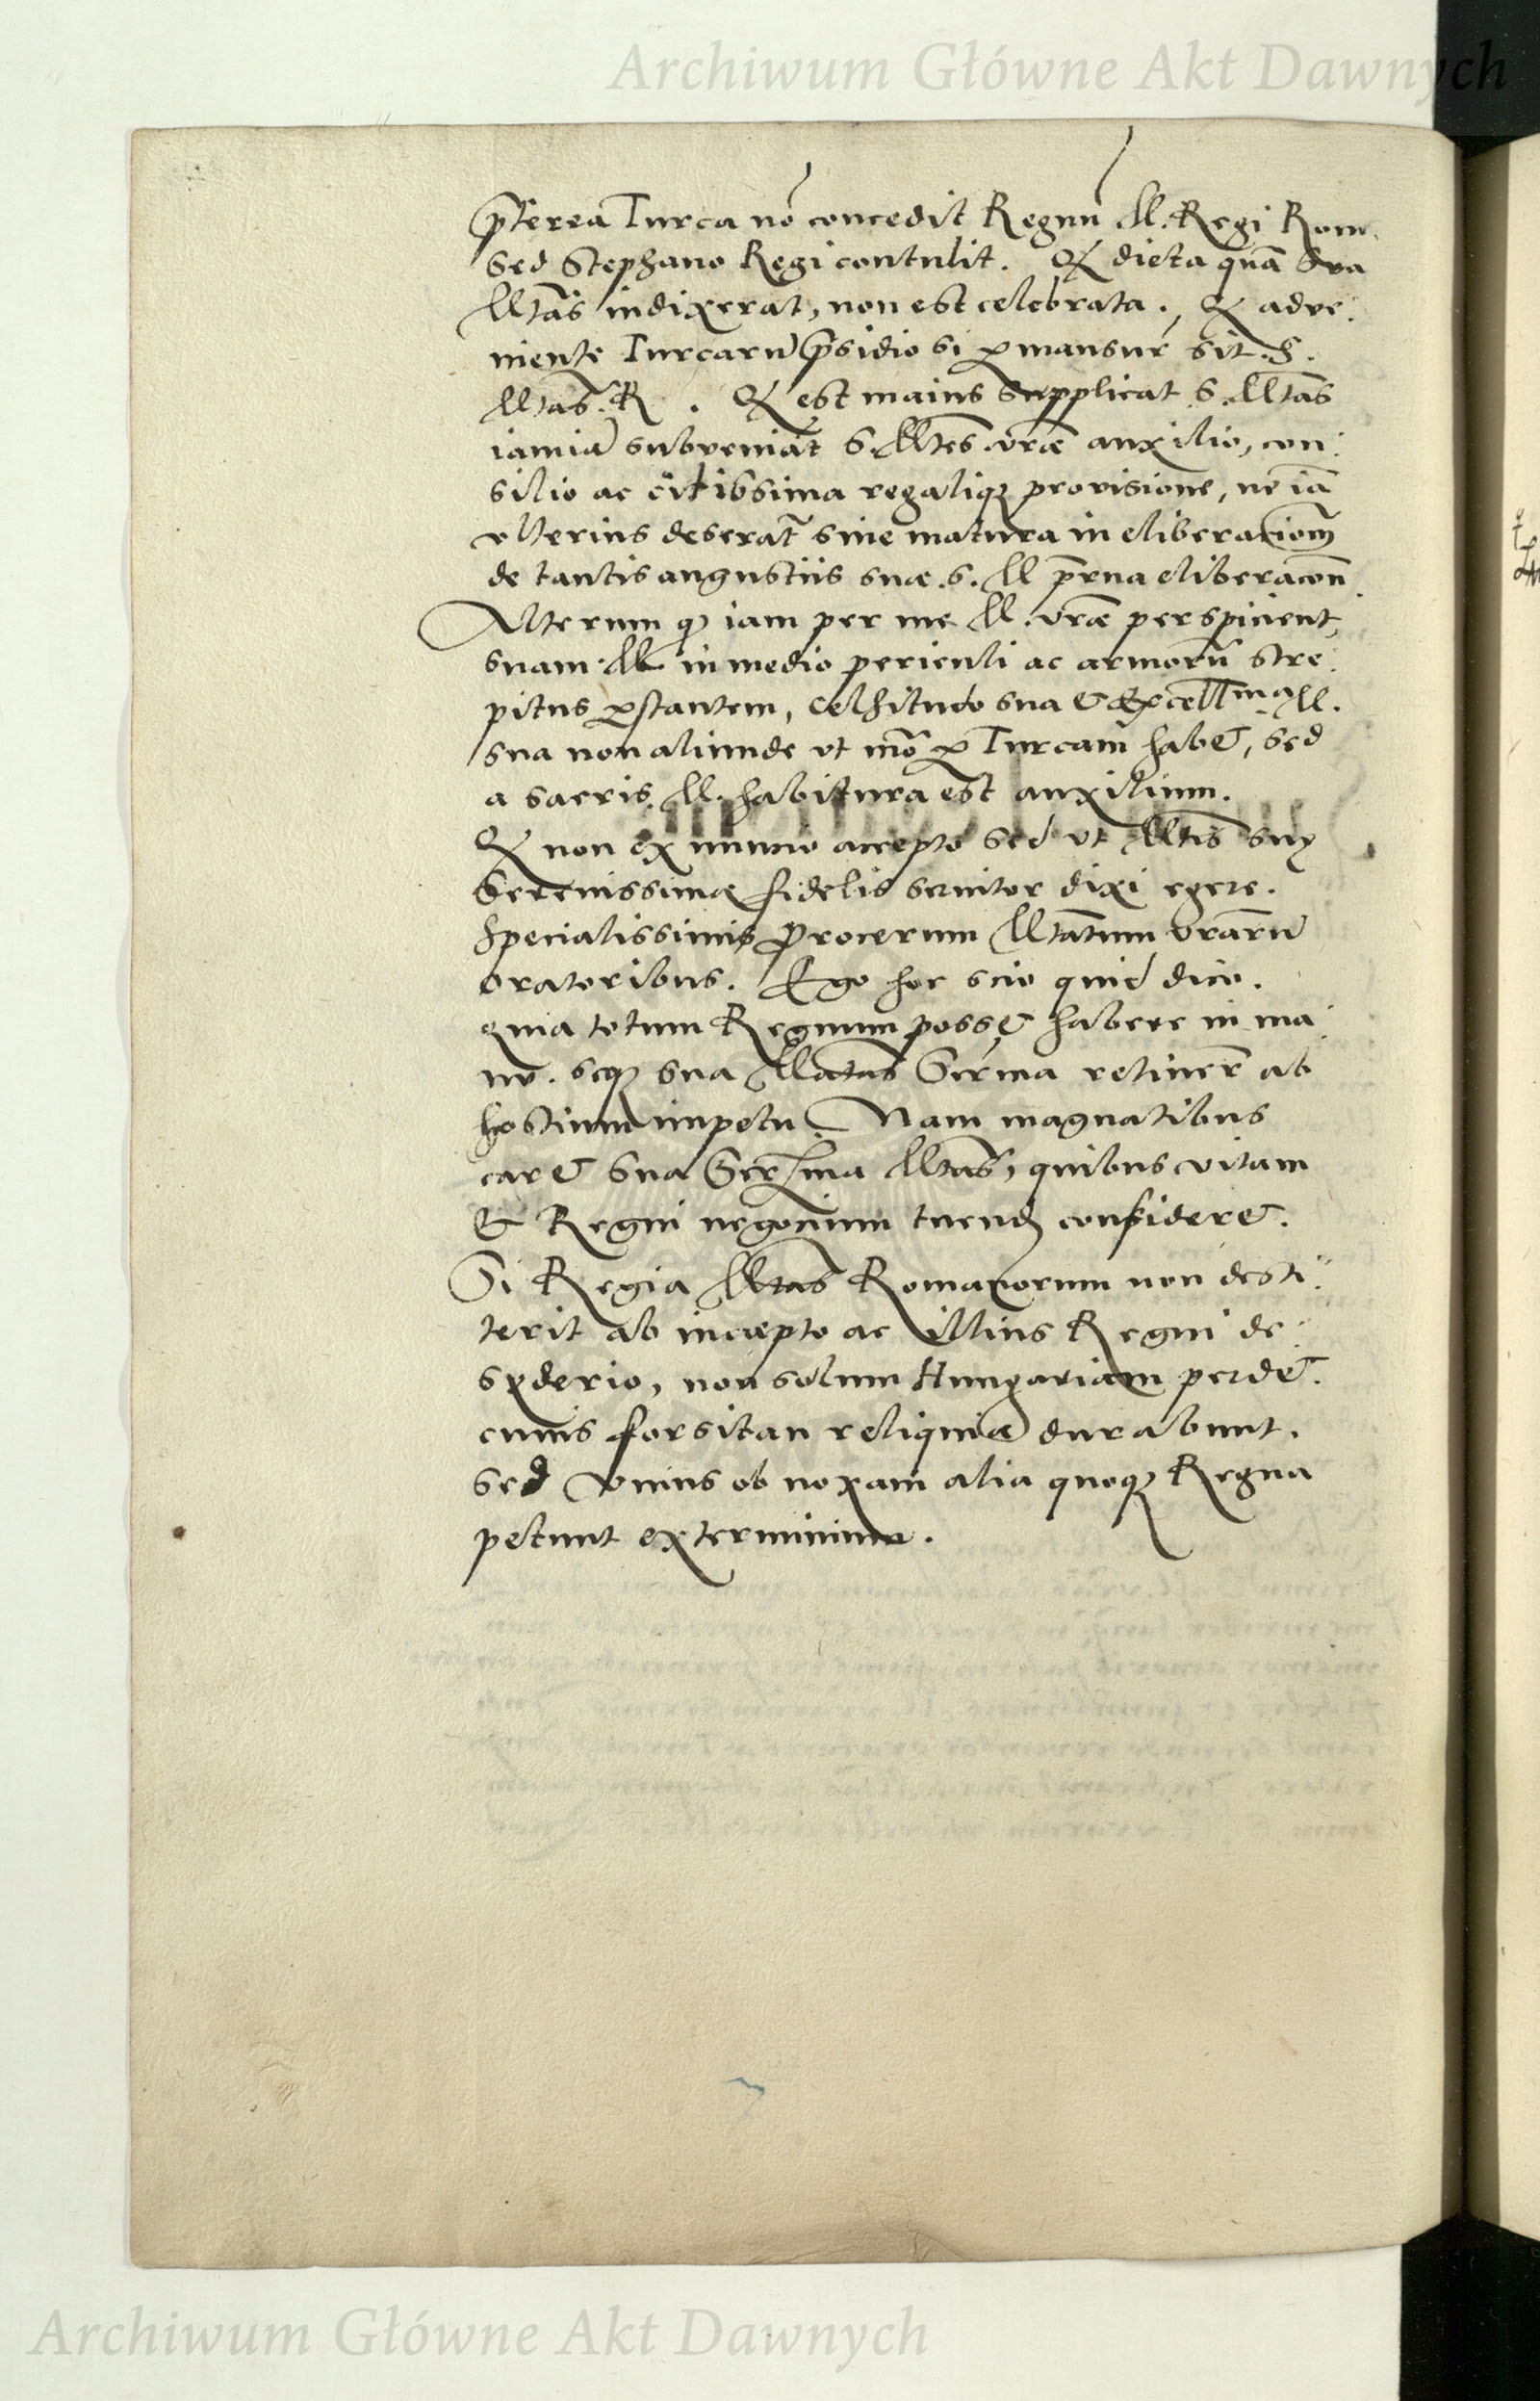 Archiwum Główne Akt Dawnych
p̄terea Turca nō concedit Regnū M. Regi Rom.
sed Stephano Regi contulit. Et dieta quā sua
Mtās indixerat, non est celebrata. Et adve:
niente Turcarū p̄sidio si pmansur̄ sit. S.
Mtās. R. Et est maius supplicat S. Mtās
iamiā subveniāt S. Mtēs. vrāe auxilio, con:
silio ac citissima regaliq; provisione, ne iā
ulterius deserat̄ sine matura in eliberationē
de tantis angustiis suae. S. M p̄rna eliberacōn
Alterum q iam per me M. vrāe perspicient,
suam. M in medio periculi ac armorū stre:
pitus pstantem, Celsitudo sua & Excellma M.
sua non aliunde ut mō p Turcam habet, sed
a sacris. M. habitura est auxilium.
Et non ex nuncio accepto sed ut Mtis suę
Serenissimae fidelis servitor dixi egere.
Specialissimis Procerum Mtātum vrārū
Oratoribus. Ego hoc scio quid dico.
quia totum Regnum posset habere in ma:
nu. seq; sua Matas Serma retiner̄ ab
hostium impetu. Nam magnatibus
caret sua Serma Mtās, quibus vitam
& Regni negocium tuend confideret.
Si Regia Mtas Romanorum non desti:
terit ab incaepto ac illius Regni de:
syderio, non solum Hungariam perdet.
cuius forsitan reliquiae durabunt.
sed unius ob noxam alia quoq; Regna
petunt exterminium.
Archiwum Główne Akt Dawnych